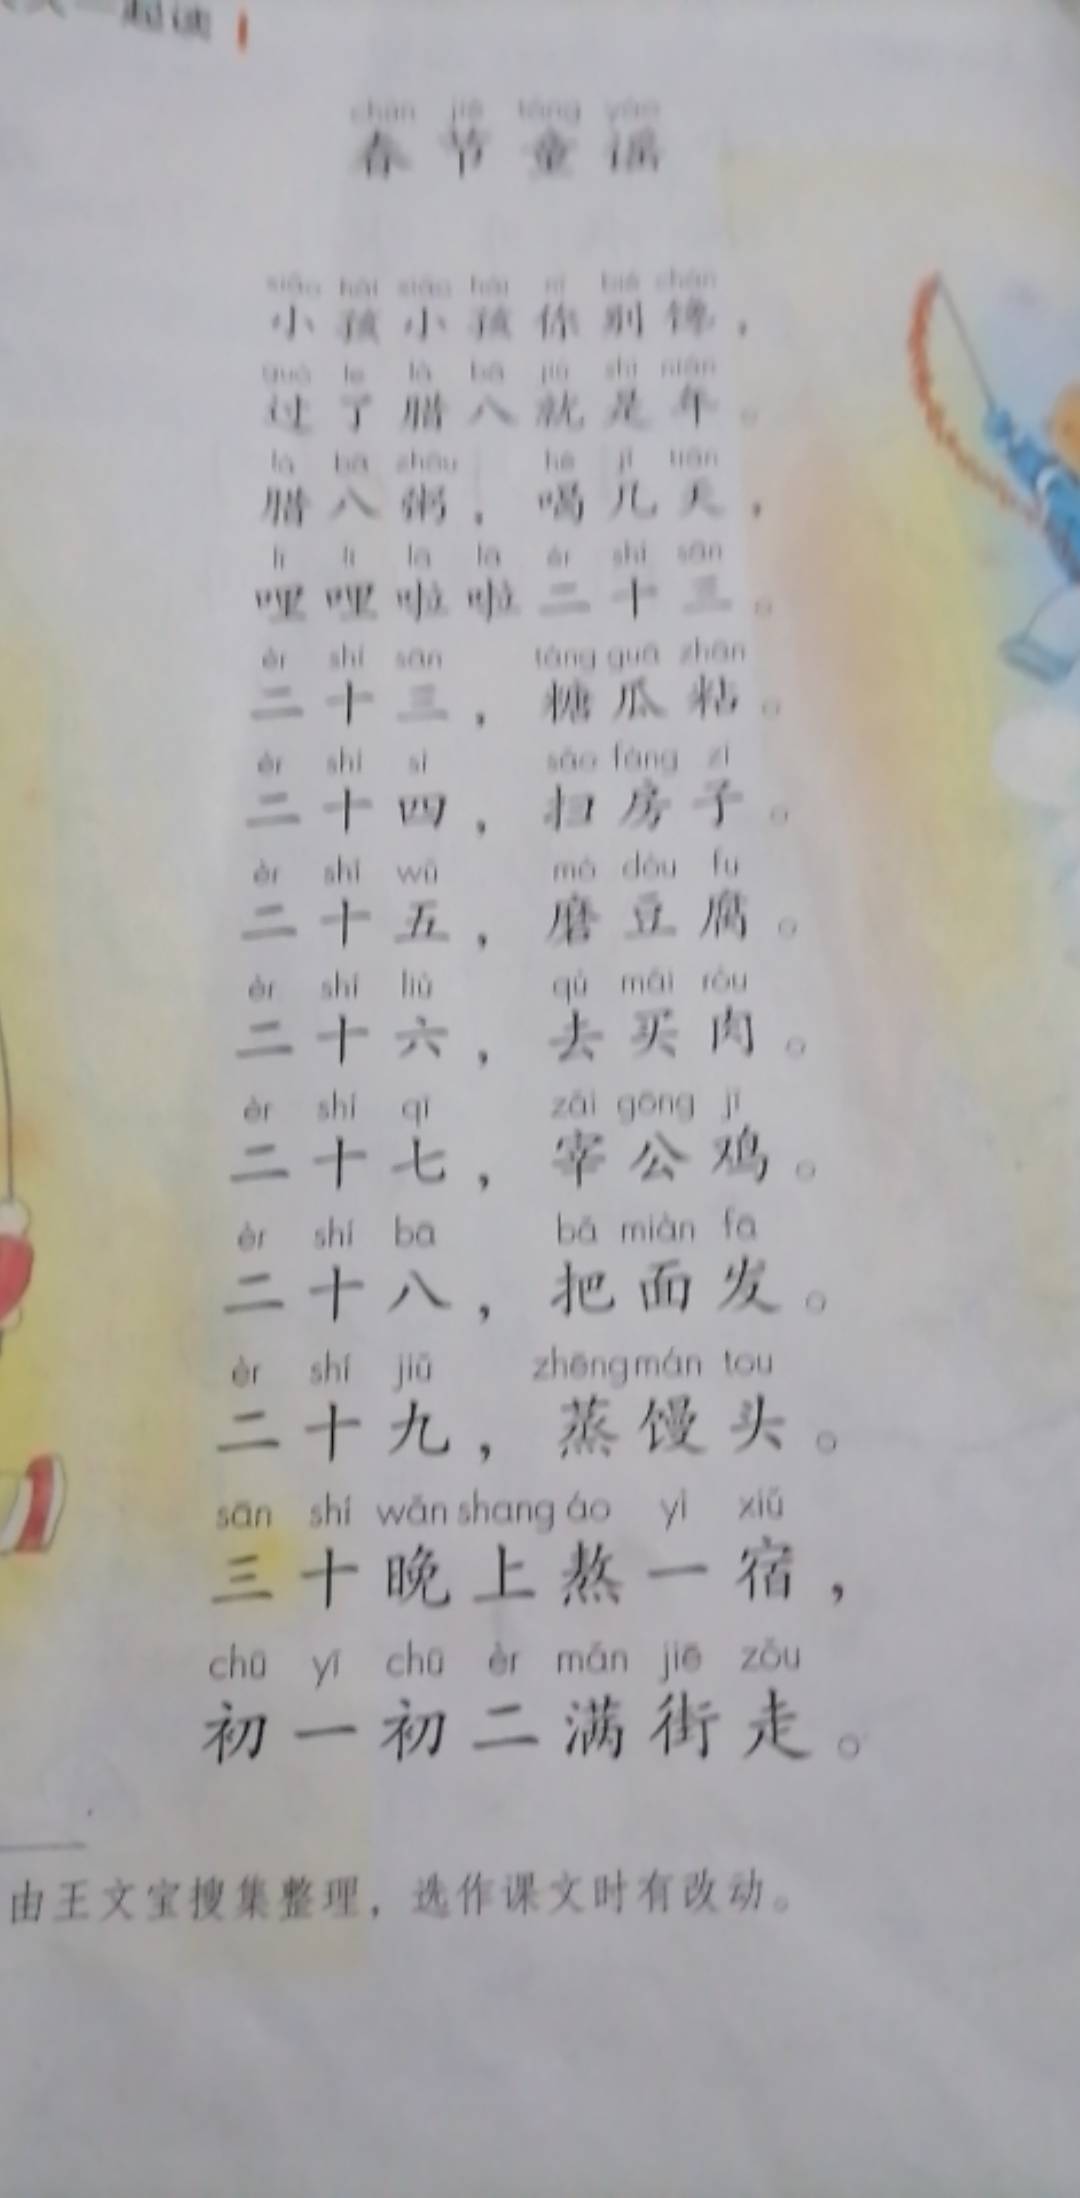 一起读
chūn jié tóng yáo
春节童谣
xiǎo hái xiǎo hái nǐ bié chán
小孩小孩你别馋，
guò le là bā jiù shì nián
过了腊八就是年。
là bā zhōu hē jǐ tiān
腊八粥，喝几天，
lī lī lā lā èr shí sān
哩哩啦啦二十三。
èr shí sān táng guā zhān
二十三，糖瓜粘。
èr shí sì sǎo fáng zi
二十四，扫房子。
èr shí wǔ mò dòu fu
二十五，磨豆腐。
èr shí liù qù mǎi ròu
二十六，去买肉。
èr shí qī zǎi gōng jī
二十七，宰公鸡。
èr shí bā bǎ miàn fā
二十八，把面发。
èr shí jiǔ zhēng mán tou
二十九，蒸馒头。
sān shí wǎn shang áo yì xiǔ
三十晚上熬一宿，
chū yī chū èr mǎn jiē zǒu
初一初二满街走。
由王文宝搜集整理，选作课文时有改动。